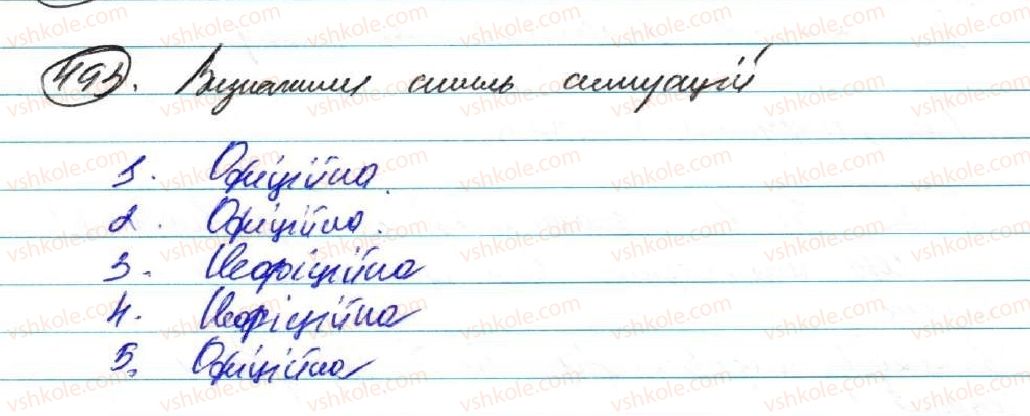 493. Визначили стиль ситуацій
1. Офіційна.
2. Офіційна.
3. Неофіційна
4. Неофіційна
5. Офіційна